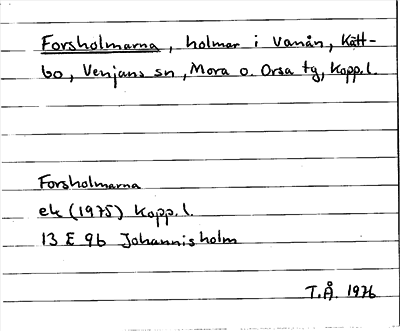 Forsholmarna, holmar i Vanån, Kätt-
bo, Venjans sn, Mora o. Orsa tg, Kopp.l.
Forsholmarna
ek (1975) Kopp.l.
13 E 9b Johannisholm
T.Å. 1976